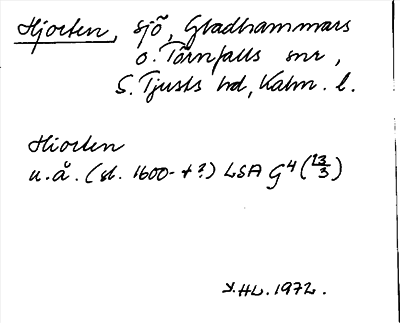 Hjorten, sjö, Gladhammars
o. Törnfalls snr,
S. Tjusts hd, Kalm. l.
Hiorten
u.å. (sl. 1600-t?) LSA G4 (13/3)
Y.HL. 1972.